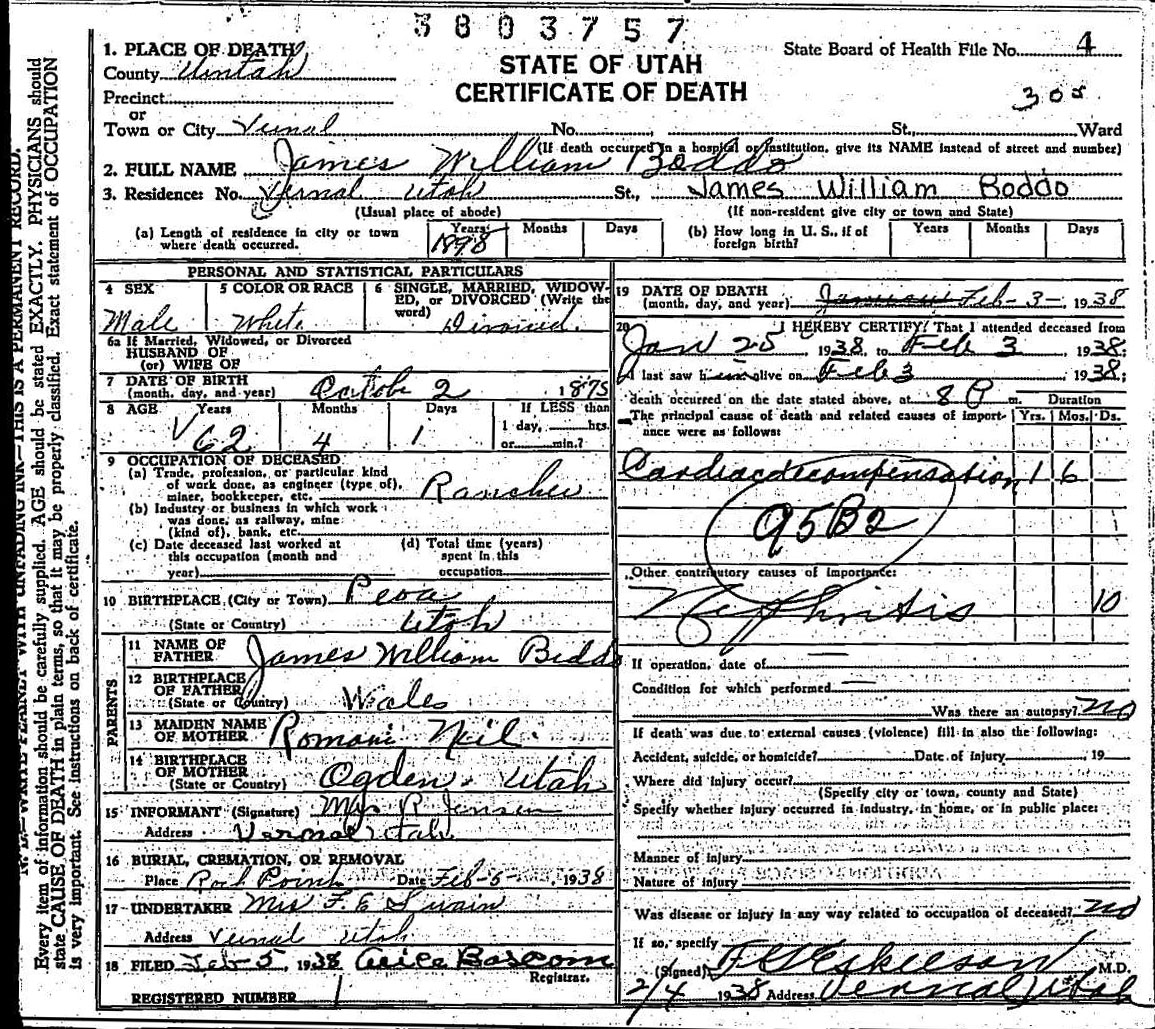 3803757
1. PLACE OF DEATH
State Board of Health File No. 4
County Uintah
STATE OF UTAH
Precinct
CERTIFICATE OF DEATH
305
or
Town or City Vernal No. St., Ward
(If death occurred in a hospital or institution, give its NAME instead of street and number)
2. FULL NAME James William Boddo
3. Residence: No. Vernal Utah St., James William Boddo
(Usual place of abode) (If non-resident give city or town and State)
(a) Length of residence in city or town where death occurred. Years 1898 Months Days
(b) How long in U. S., if of foreign birth? Years Months Days
PERSONAL AND STATISTICAL PARTICULARS
4 SEX 5 COLOR OR RACE 6 SINGLE, MARRIED, WIDOWED, or DIVORCED (Write the word)
Male White Divorced.
6a If Married, Widowed, or Divorced
HUSBAND OF
(or) WIFE OF
7 DATE OF BIRTH
(month, day, and year) Octobe 2 1875
8 AGE Years Months Days If LESS than
1 day, hrs.
62 4 1 or min.?
9 OCCUPATION OF DECEASED
(a) Trade, profession, or particular kind
of work done, as engineer (type of),
miner, bookkeeper, etc. Rancher
(b) Industry or business in which work
was done, as railway, mine
(kind of), bank, etc.
(c) Date deceased last worked at
this occupation (month and
year)
(d) Total time (years)
spent in this
occupation
10 BIRTHPLACE (City or Town) Peoa
(State or Country) Utah
PARENTS
11 NAME OF
FATHER James William Boddo
12 BIRTHPLACE
OF FATHER
(State or Country) Wales
13 MAIDEN NAME
OF MOTHER Romani Neil.
14 BIRTHPLACE
OF MOTHER
(State or Country) Ogden Utah
15 INFORMANT (Signature) Mrs R Jensen
Address Vernal Utah
16 BURIAL, CREMATION, OR REMOVAL
Place Rock Point Date Feb-5 1938
17 UNDERTAKER Mrs F. E Swain
Address Vernal Utah
18 FILED Feb 5, 1938 Bascom
Registrar.
REGISTERED NUMBER 1
19 DATE OF DEATH
(month, day, and year) Feb-3- 1938
20 I HEREBY CERTIFY, That I attended deceased from
Jan 25, 1938, to Feb 3, 1938;
I last saw him alive on Feb 3 1938;
death occurred on the date stated above, at 8 P m. Duration
The principal cause of death and related causes of importance were as follows: Yrs. Mos. Ds.
Cardiac decompensation 1 6
95B2
Other contributory causes of importance:
Nephritis 10
If operation, date of —
Condition for which performed —
Was there an autopsy? no
If death was due to external causes (violence) fill in also the following:
Accident, suicide, or homicide? Date of injury , 19
Where did injury occur?
(Specify city or town, county and State)
Specify whether injury occurred in industry, in home, or in public place:
Manner of injury
Nature of injury
Was disease or injury in any way related to occupation of deceased? no
If so, specify
(Signed) F G Eskelson M.D.
2/4 1938 Address Vernal Utah
N. B.—WRITE PLAINLY WITH UNFADING INK—THIS IS A PERMANENT RECORD.
Every item of information should be carefully supplied. AGE should be stated EXACTLY. PHYSICIANS should
state CAUSE OF DEATH in plain terms, so that it may be properly classified. Exact statement of OCCUPATION
is very important. See instructions on back of certificate.